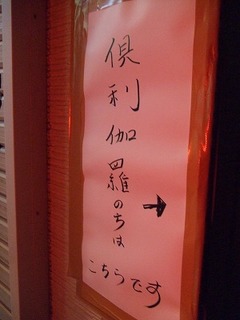 倶利伽羅のちは
→
こちらです